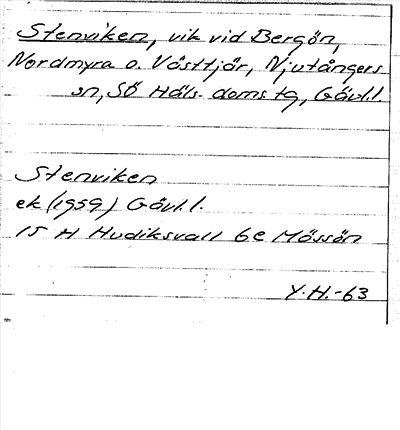 Stenviken, vik vid Bergön,
Nordmyra o. Västtjär, Njutångers
sn, SÖ Häls. doms tg, Gävl.l.
Stenviken
ek (1959) Gävl.l.
15 H Hudiksvall 6e Mössön
Y.H.-63